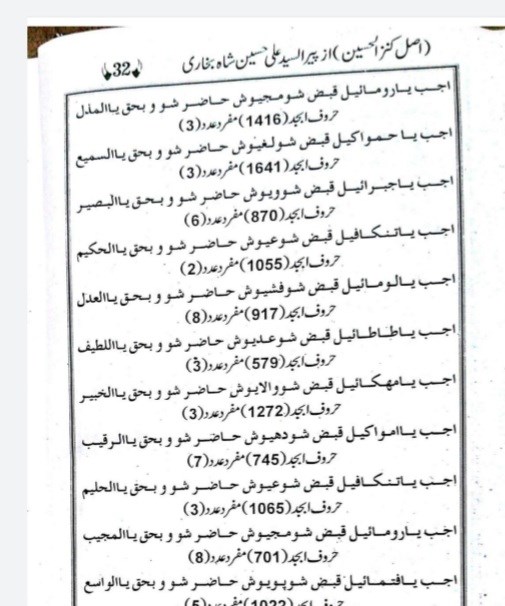 (اصل کنز الحسین) از پیر السید علی حسین شاہ بخاری
32
اجب یارومائیل قبض شومجیوش حاضر شو و بحق یاالمذل
حروف ابجد(1416)مفرد عدد(3)
اجب یا حمواکیل قبض شولغیوش حاضر شو و بحق یاالسمیع
حروف ابجد(1641)مفرد عدد(3)
اجب یاجبرائیل قبض شوویوش حاضر شو و بحق یاالبصیر
حروف ابجد(870)مفرد عدد(6)
اجب یاتنکافیل قبض شوعیوش حاضر شو و بحق یاالحکیم
حروف ابجد(1055)مفرد عدد(2)
اجب یالومائیل قبض شوفشیوش حاضر شو و بحق یاالعدل
حروف ابجد(917)مفرد عدد(8)
اجب یاطاطائیل قبض شوعدیوش حاضر شو و بحق یااللطیف
حروف ابجد(579)مفرد عدد(3)
اجب یامھکائیل قبض شووالایوش حاضر شو و بحق یاالخبیر
حروف ابجد(1272)مفرد عدد(3)
اجب یاامواکیل قبض شودھیوش حاضر شو و بحق یاالرقیب
حروف ابجد(745)مفرد عدد(7)
اجب یاتنکافیل قبض شوعیوش حاضر شو و بحق یاالحلیم
حروف ابجد(1065)مفرد عدد(3)
اجب یارومائیل قبض شومجیوش حاضر شو و بحق یاالمجیب
حروف ابجد(701)مفرد عدد(8)
اجب یافتمائیل قبض شوپویوش حاضر شو و بحق یاالواسع
حروف ابجد(1022)مفرد عدد(5)